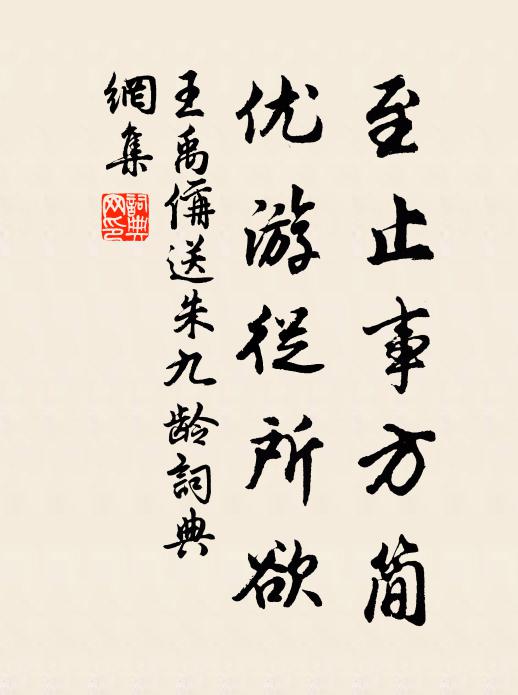 至止事方简
优游從所欲
王禹偁送朱九龄詞典
網集
詞典
网印